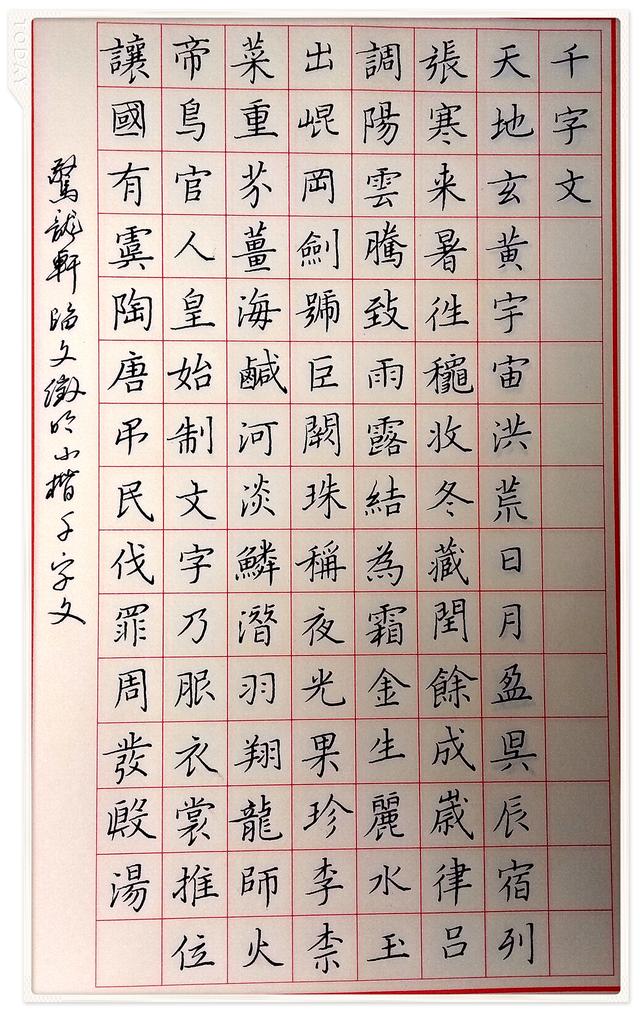 千字文
天地玄黃宇宙洪荒日月盈昃辰宿列
張寒来暑徃穐收冬藏閏餘成嵗律呂
調陽雲騰致雨露結為霜金生麗水玉
出崐岡劍號巨闕珠稱夜光果珍李柰
菜重芥薑海鹹河淡鱗潛羽翔龍師火
帝鳥官人皇始制文字乃服衣裳推位
讓國有虞陶唐弔民伐罪周發殷湯
驚龍軒临文徵明小楷千字文
TODAY